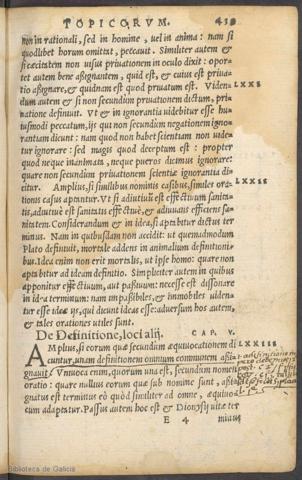 TOPICORVM. 439
non in rationali, sed in homine, vel in anima: nam si
quodlibet horum omittat, peccauit. Similiter autem &
si cæcitatem non uisus priuationem in oculo dixit: opor-
tet autem bene aßignantem, quid est, & cuius est priua-
tio aßignare, & quidnam est quod priuatum est. Viden LXXI
dum autem & si non secundum priuationem dictum, priu-
atione definiuit. Vt & in ignorantia uidebitur esse hu
iusmodi peccatum, ijs qui non secundum negationem igno-
rantiam dicunt: nam quod non habet scientiam non vide-
tur ignorare: sed magis quod deceptum est: propter
quod neque inanimata, neque pueros dicimus ignorare:
quare non secundum priuationem scientiæ ignorantia di-
citur. Amplius, si similibus nominis casibus, similes ora- LXXII
tionis casus aptantur. Vt si adiutiuū est effectiuum sanita-
tis, adiutiuè est sanitatis effectiuè, & adiuuans efficiens sa-
nitatem. Considerandum & in idea, si aptabitur dictus ter
minus. Nam in quibusdam non accidit: ut quemadmodum
Plato definiuit, mortale addens in animalium definitioni-
bus. Idea enim non erit mortalis, ut ipse homo: quare non
aptabitur ad ideam definitio. Simpliciter autem in quibus
apponitur effectiuum, aut paßiuum: necesse est dissonare
in idea terminum: nam impaßibiles, & immobiles uiden-
tur esse ideæ ijs, qui dicunt ideas esse: aduersum hos autem,
& tales orationes utiles sunt.
De Definitione, loci alij. CAP. V.
AMplius, si eorum quæ secundum æquiuocationem di LXXIII
cuntur, unam definitionem omnium communem aßi-
gnauit. Vniuoca enim, quorum una est, secundum nomen
oratio: quare nullus eorum quæ sub nomine sunt, aßi-
gnatus est terminus eò quòd similiter ad omne, æquiuo-
cum adaptatur. Passus autem hoc est & Dionysij vitæ ter
E 4 minus
Biblioteca de Galicia